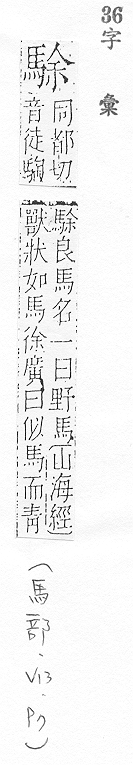 36
字彙
駼
同都切
音徒騊
駼良馬名一曰野馬〔山海經〕
獸狀如馬徐廣曰似馬而青
(馬部·V13·P7)